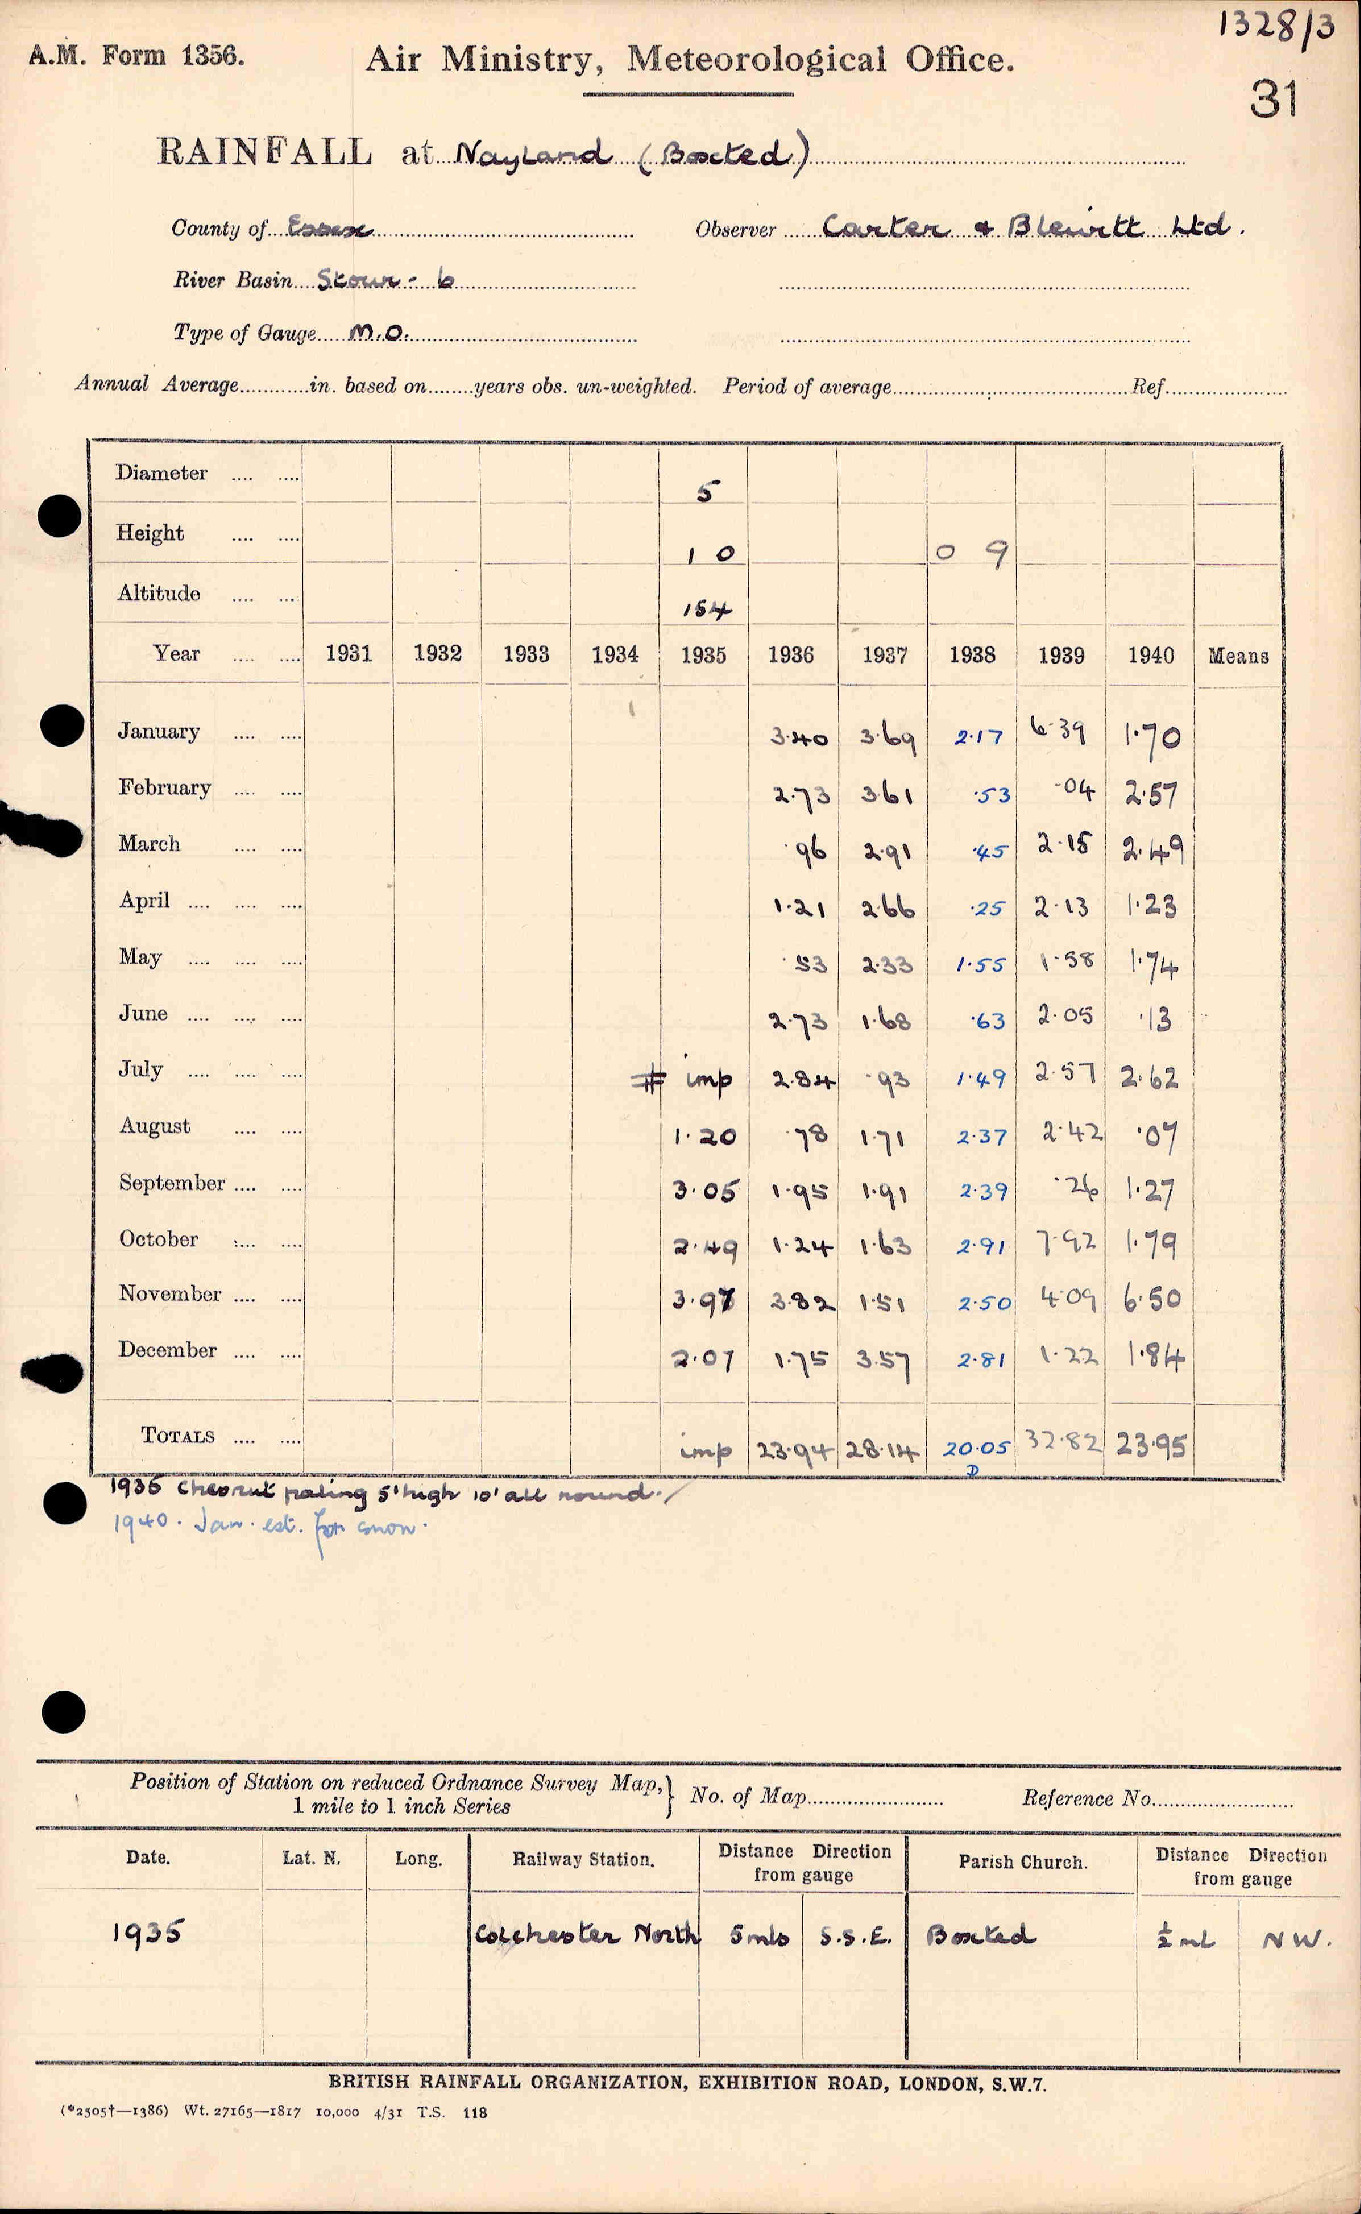 1328/3
A.M. Form 1356. Air Ministry, Meteorological Office.
31
RAINFALL at Nayland (Boxted)
County of Essex Observer Carter & Blewitt Ltd.
River Basin Stour - 6
Type of Gauge M.O.
Annual Average in. based on years obs. un-weighted. Period of average Ref.
Diameter 5
Height 1 0 0 9
Altitude 154
Year 1931 1932 1933 1934 1935 1936 1937 1938 1939 1940 Means
January 3.40 3.69 2.17 6.39 1.70
February 2.73 3.61 .53 .04 2.57
March .96 2.91 .45 2.15 2.49
April 1.21 2.66 .25 2.13 1.23
May .53 2.33 1.55 1.58 1.74
June 2.73 1.68 .63 2.05 .13
July # imp 2.84 .93 1.49 2.57 2.62
August 1.20 .78 1.71 2.37 2.42 .07
September 3.05 1.95 1.91 2.39 .26 1.27
October 2.49 1.24 1.63 2.91 7.92 1.79
November 3.97 3.82 1.51 2.50 4.09 6.50
December 2.07 1.75 3.57 2.81 1.22 1.84
TOTALS imp 23.94 28.14 20.05 32.82 23.95
D
1935 Chesnut paling 5' high 10' all round.
1940. Jan. est. for snow.
Position of Station on reduced Ordnance Survey Map, } No. of Map Reference No.
1 mile to 1 inch Series
Date. Lat. N. Long. Railway Station. Distance Direction from gauge Parish Church. Distance Direction from gauge
1935 Colchester North 5 mls S.S.E. Boxted ½ ml NW.
BRITISH RAINFALL ORGANIZATION, EXHIBITION ROAD, LONDON, S.W.7.
(*2505†—1386) Wt. 27165—1817 10,000 4/31 T.S. 118